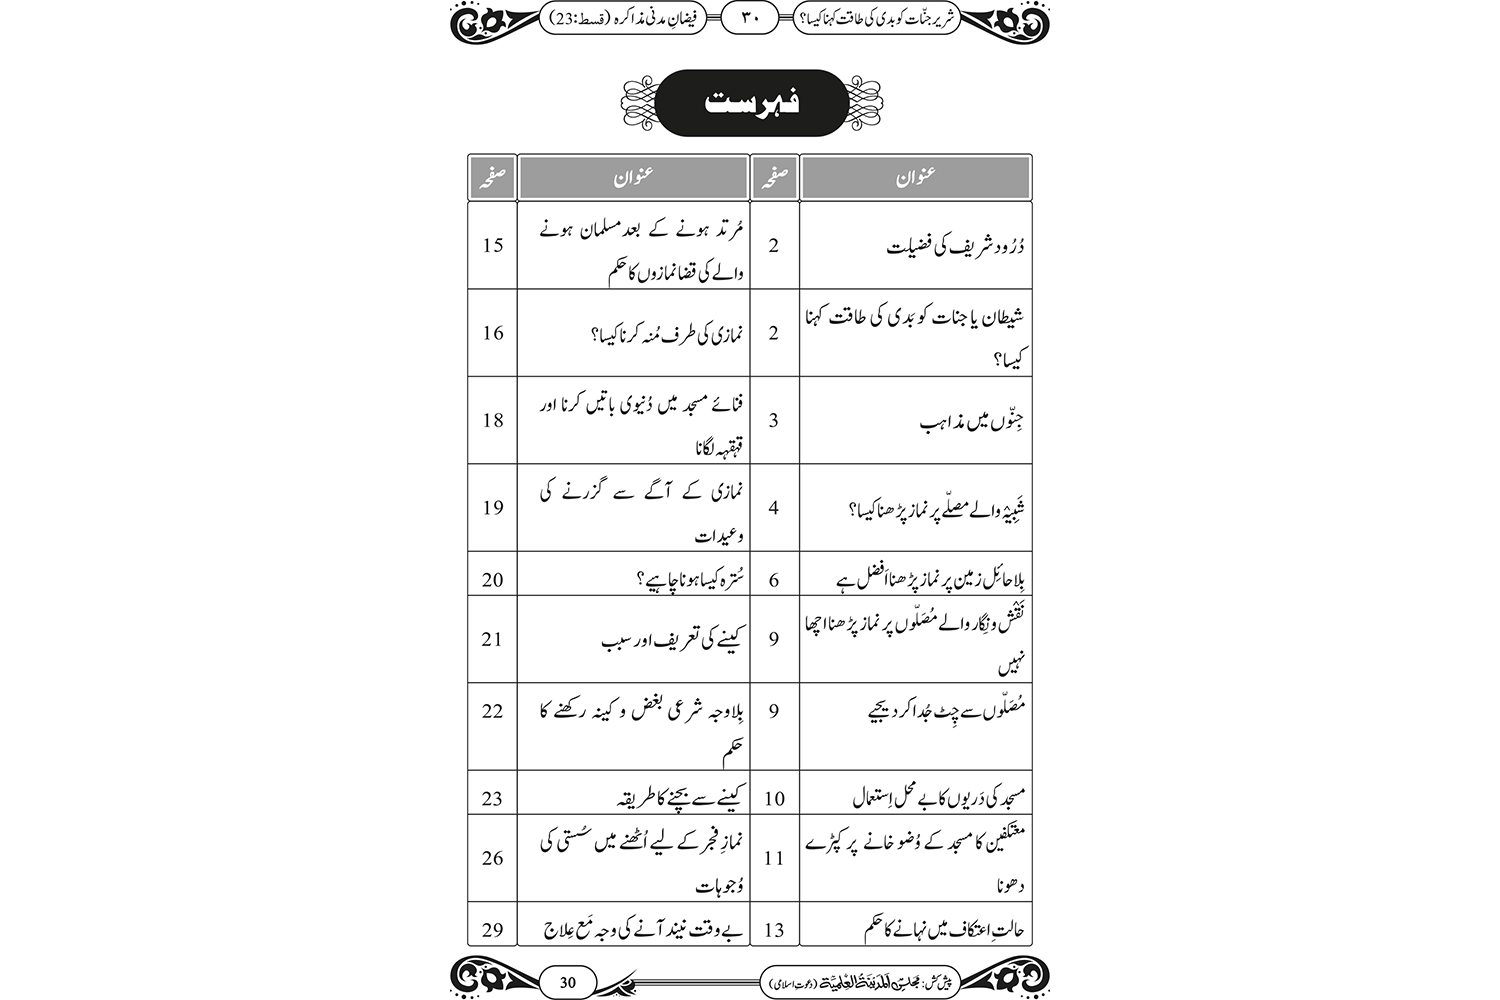 شریر جنّات کو بدی کی طاقت کہنا کیسا؟ ۳۰ فیضانِ مدنی مذاکرہ (قسط:23)
فہرست
عنوان صفحہ عنوان صفحہ
دُرُود شریف کی فضیلت 2
مُرتد ہونے کے بعد مسلمان ہونے
والے کی قضا نمازوں کا حکم 15
شیطان یا جنات کو بَدی کی طاقت کہنا
کیسا؟ 2
نمازی کی طرف مُنہ کرنا کیسا؟ 16
جِنّوں میں مذاہب 3
فنائے مسجد میں دُنیوی باتیں کرنا اور
قہقہہ لگانا 18
شَبِیْہ والے مصلّے پر نماز پڑھنا کیسا؟ 4
نمازی کے آگے سے گزرنے کی
وعیدات 19
بِلا حائِل زمین پر نماز پڑھنا اَفضل ہے 6
سُترہ کیسا ہونا چاہیے؟ 20
نَقْش و نِگار والے مُصَلّوں پر نماز پڑھنا اچھا
نہیں 9
کینے کی تعریف اور سبب 21
مُصَلّوں سے چِٹ جُدا کر دیجیے 9
بِلاوجہ شرعی بغض و کینہ رکھنے کا
حکم 22
مسجد کی دَریوں کا بے محل اِستعمال 10
کینے سے بچنے کا طریقہ 23
معتکفین کا مسجد کے وُضو خانے پر کپڑے
دھونا 11
نمازِ فجر کے لیے اُٹھنے میں سُستی کی
وُجوہات 26
حالتِ اعتکاف میں نہانے کا حکم 13
بے وقت نیند آنے کی وجہ مَع عِلاج 29
پیش کش: مجلس المدینۃ العلمیۃ (دعوتِ اسلامی) 30